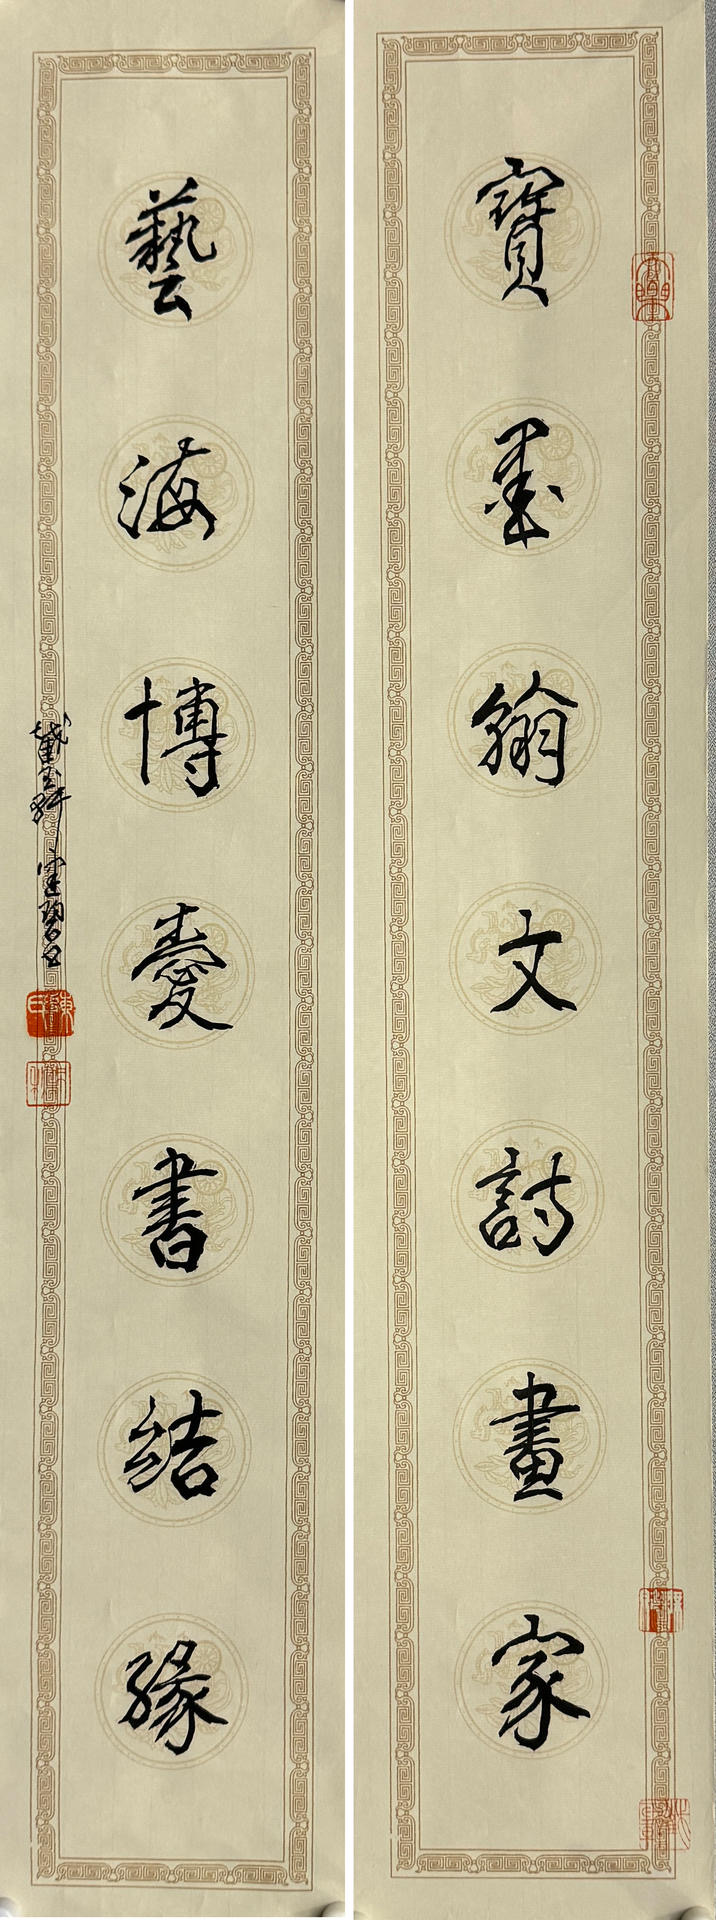 寶墨翰文詩畫家
藝海博愛書結緣